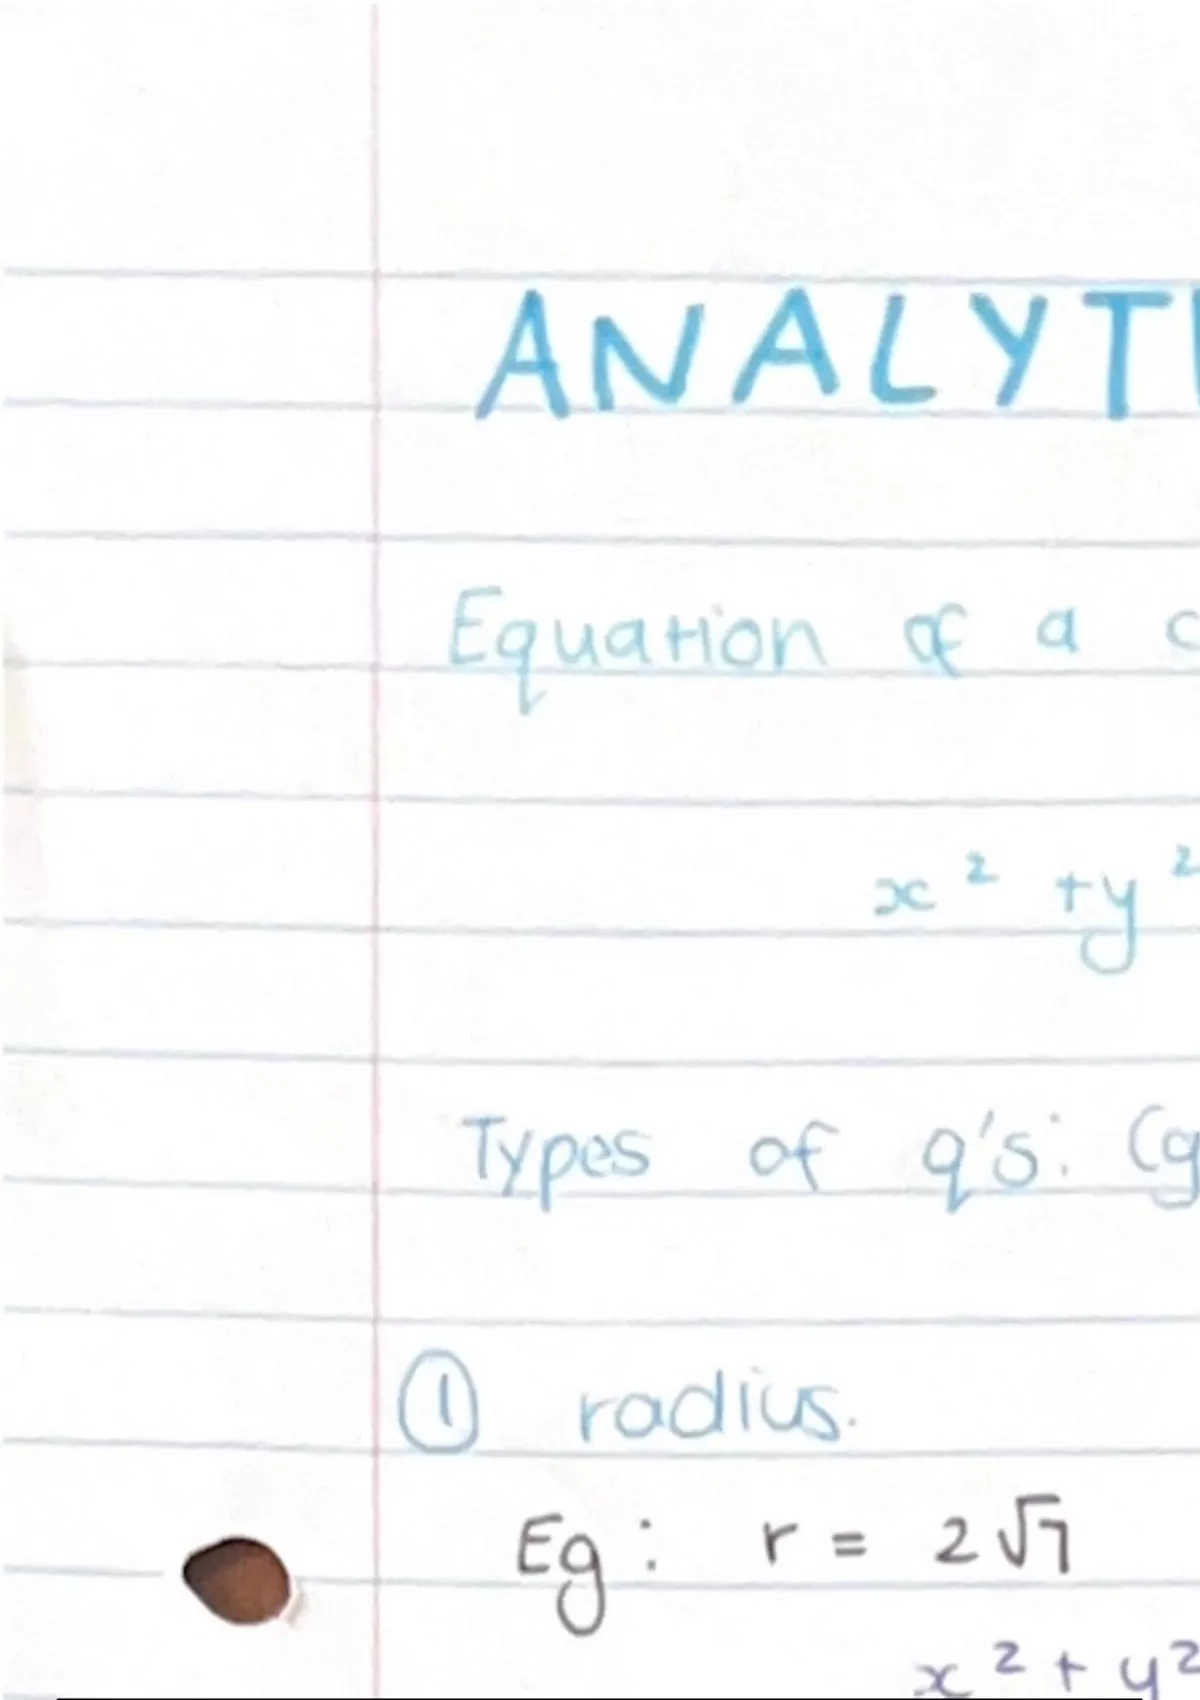 ANALYT
Equation of a c
x² + y²
Types of q's: (g
① radius.
Eg: r = 2√7
x² + y²